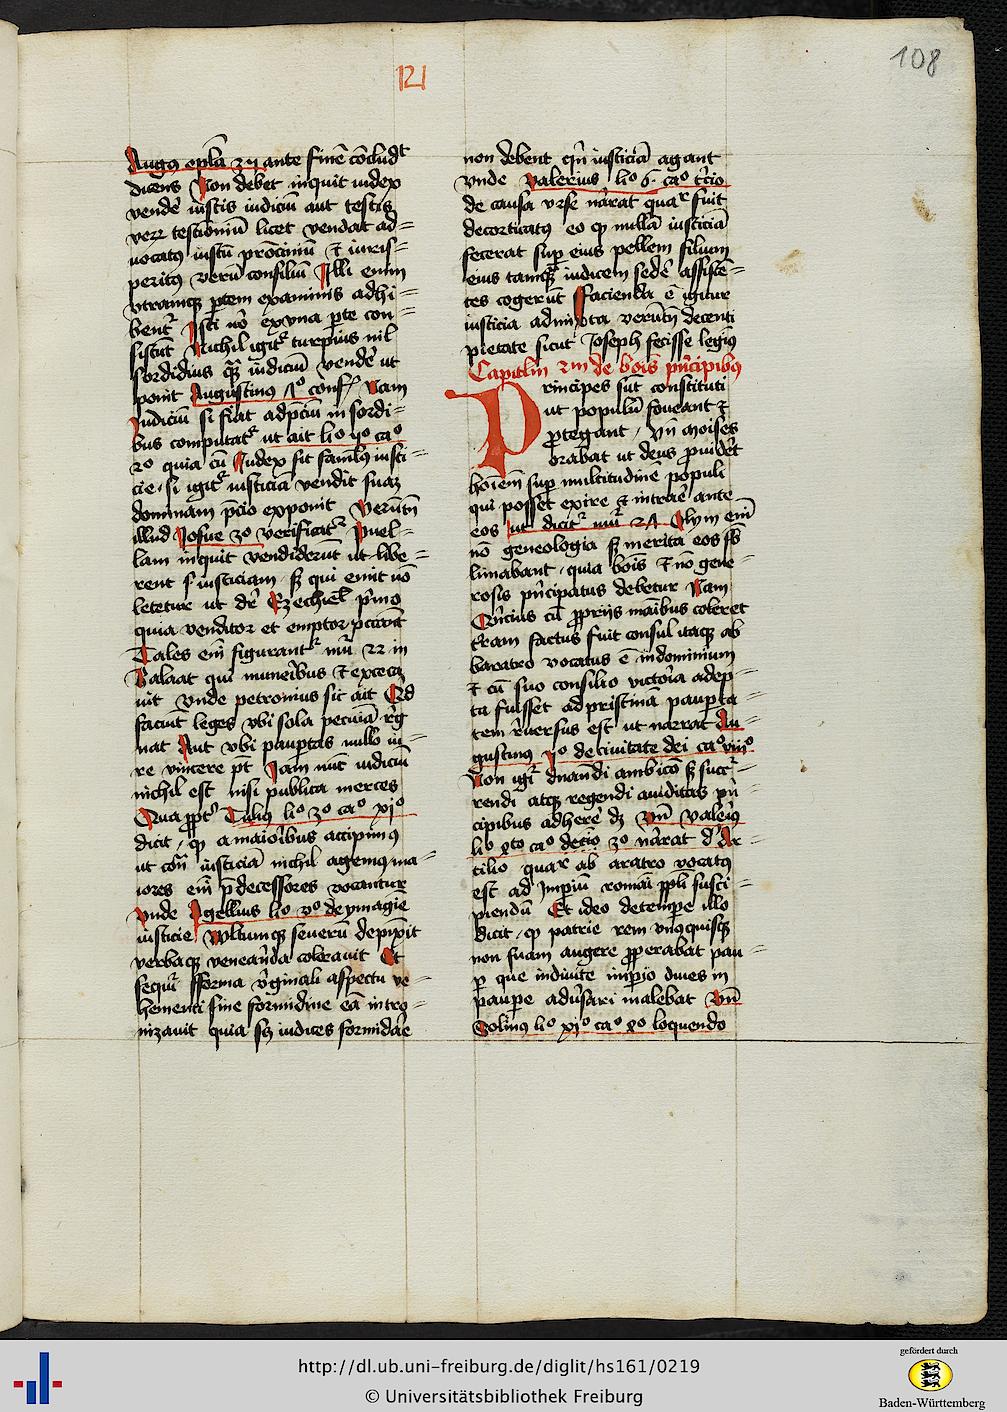 121
108
Augus epla xij ante finē cōcludt
dicens Non debet inquit iudex
vendē iustis iudiciū aut testis
veꝝ testimoniū licet vendat ad=
uocatꝰ iustū prōciniū et iuris=
peritꝰ verū consiliū Illi enim
vtramqꝫ ptem examinis adhi=
bent Isti nō ex vna pte con=
sistūt Nichil igit turpius nil
sordidius qꝫ iudiciū vendē ut
ponit Augustinus io conf Nam
iudiciū si fiat ad pciū in sordi=
bus computat ut ait lio ijo cao
2o quia cū Iudex sit famlꝰ iusti
cie si igit iusticiā vendit suaꝫ
dominam pcio exponit verūtn
illud Josue 3o verificat Puel=
lam inquit vendiderūt ut libe=
rent iusticiam sꝫ qui emit nō
letetur ut dr Ezechiel pmo
quia venditor et emptor pccant
Tales em figurant mū 22 in
Balaat qui munibus et excecꝫ
uit vnde petronius sic ait Qd
faciūt leges vbi sola pecuia rg
nat Aut vbi pauptas nullo iu=
re vincere pt Jam nūt iudiciū
nichil est nisi publica merces
Qua ppt Tulius lio 3o cao xjo
dicit qꝫ a maioribus accipimꝰ
ut cont iusticiā nichil agemꝰ ma=
iores em pdecessores vocantur
vnde Agellius lio ymagiē
iusticie vultumqꝫ seuerū depixit
verbaqꝫ veneanda colerauit Et
sequr fforma virginali aspectu ve=
hementi sine formidine eā intro=
nizauit quia sꝫ iudices formidāe
non debent qn iusticiā agant
vnde valerius lio 6 cao tcio
de causa vrse narrat quar fuit
decorticatꝰ eo qꝫ nullā iusticiā
fecerat sup eius pellem filium
eius tamqꝫ iudicem sedē assiste=
tes cogerūt facienda ē igitur
iusticia admixta verūtn decenti
pietate sicut Joseph fecisse legiꝰ
Capitlm de bois pncipibꝰ
Principes sūt constituti
ut populū foueant et
protegant vn moises
orabat ut deus puidēt
hoīem sup multitudinē populi
qui posset exire et intrae ante
eos ut dicit nu 2A Olym em
nō geneologia sꝫ merita eos sb
limabant quia bois et nō gene=
rosis pncipatus debetur Nam
Qncius cū pprijs maibus coleret
tram factus fuit consul itaqꝫ ab
baratro vocatus ē in dominium
et cū suo consilio victoia adep=
ta fuisset ad pristinā paupta=
tem reuersus est ut narrat Au=
gustinus de ciuitate dei cao viiio
Non igr dnandi ambico sꝫ succr=
rendi atqꝫ regendi auiditas pn
cipibus adherē dꝫ vn valerꝰ
lib cao 3o narrat d Ar=
tilio quar ab aratro vocatꝰ
est ad Impiū romāi ppli susci=
piendū Et ideo de tempe illo
dicit qꝫ patrie rem vnꝰquisqꝫ
non suam augere pperabat pau=
p que in diuite impio diues in
paupe adūsari malebat vn
Solinꝰ lio xjo cao loquendo
http://dl.ub.uni-freiburg.de/diglit/hs161/0219
© Universitätsbibliothek Freiburg
gefördert durch
Baden-Württemberg